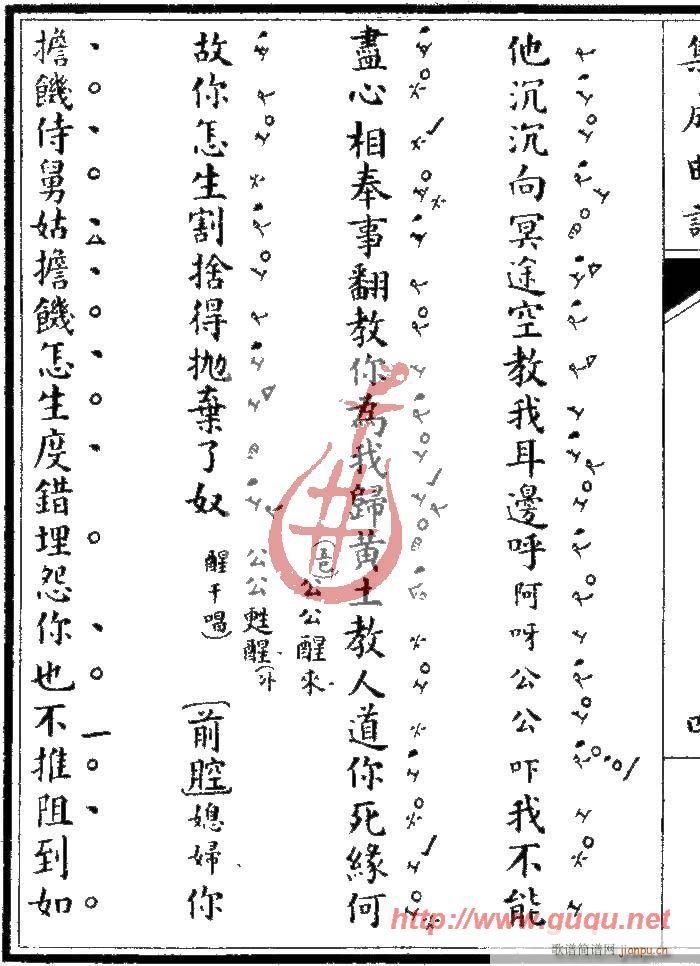 集成曲譜
四
他沉沉向冥途空教我耳邊呼阿呀公公吓我不能
盡心相奉事翻教你為我歸黃土教人道你死緣何
公公醒來
公公甦醒(外
故你怎生割捨得拋棄了奴
醒干唱)
【前腔】媳婦你
擔饑侍舅姑擔饑怎生度錯埋怨你也不推阻到如
http://www.guqu.net
歌谱简谱网
jianpu.cn